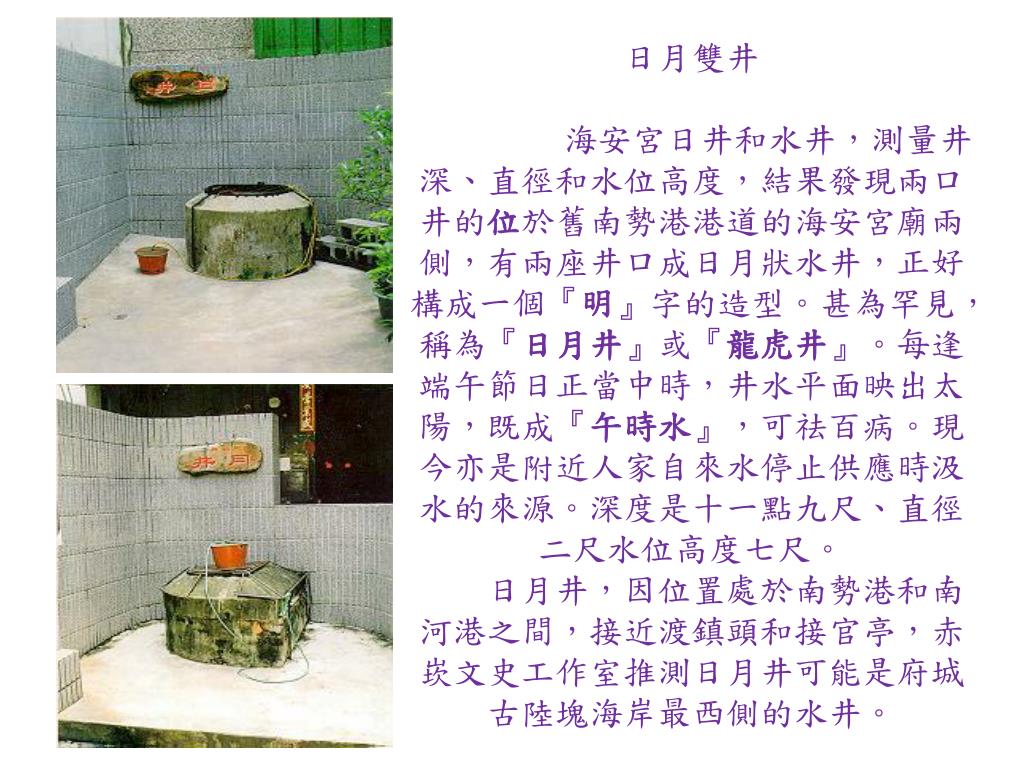 井 日
井 月
日月雙井
海安宮日井和水井，測量井
深、直徑和水位高度，結果發現兩口
井的位於舊南勢港港道的海安宮廟兩
側，有兩座井口成日月狀水井，正好
構成一個『明』字的造型。甚為罕見，
稱為『日月井』或『龍虎井』。每逢
端午節日正當中時，井水平面映出太
陽，既成『午時水』，可祛百病。現
今亦是附近人家自來水停止供應時汲
水的來源。深度是十一點九尺、直徑
二尺水位高度七尺。
日月井，因位置處於南勢港和南
河港之間，接近渡鎮頭和接官亭，赤
崁文史工作室推測日月井可能是府城
古陸塊海岸最西側的水井。